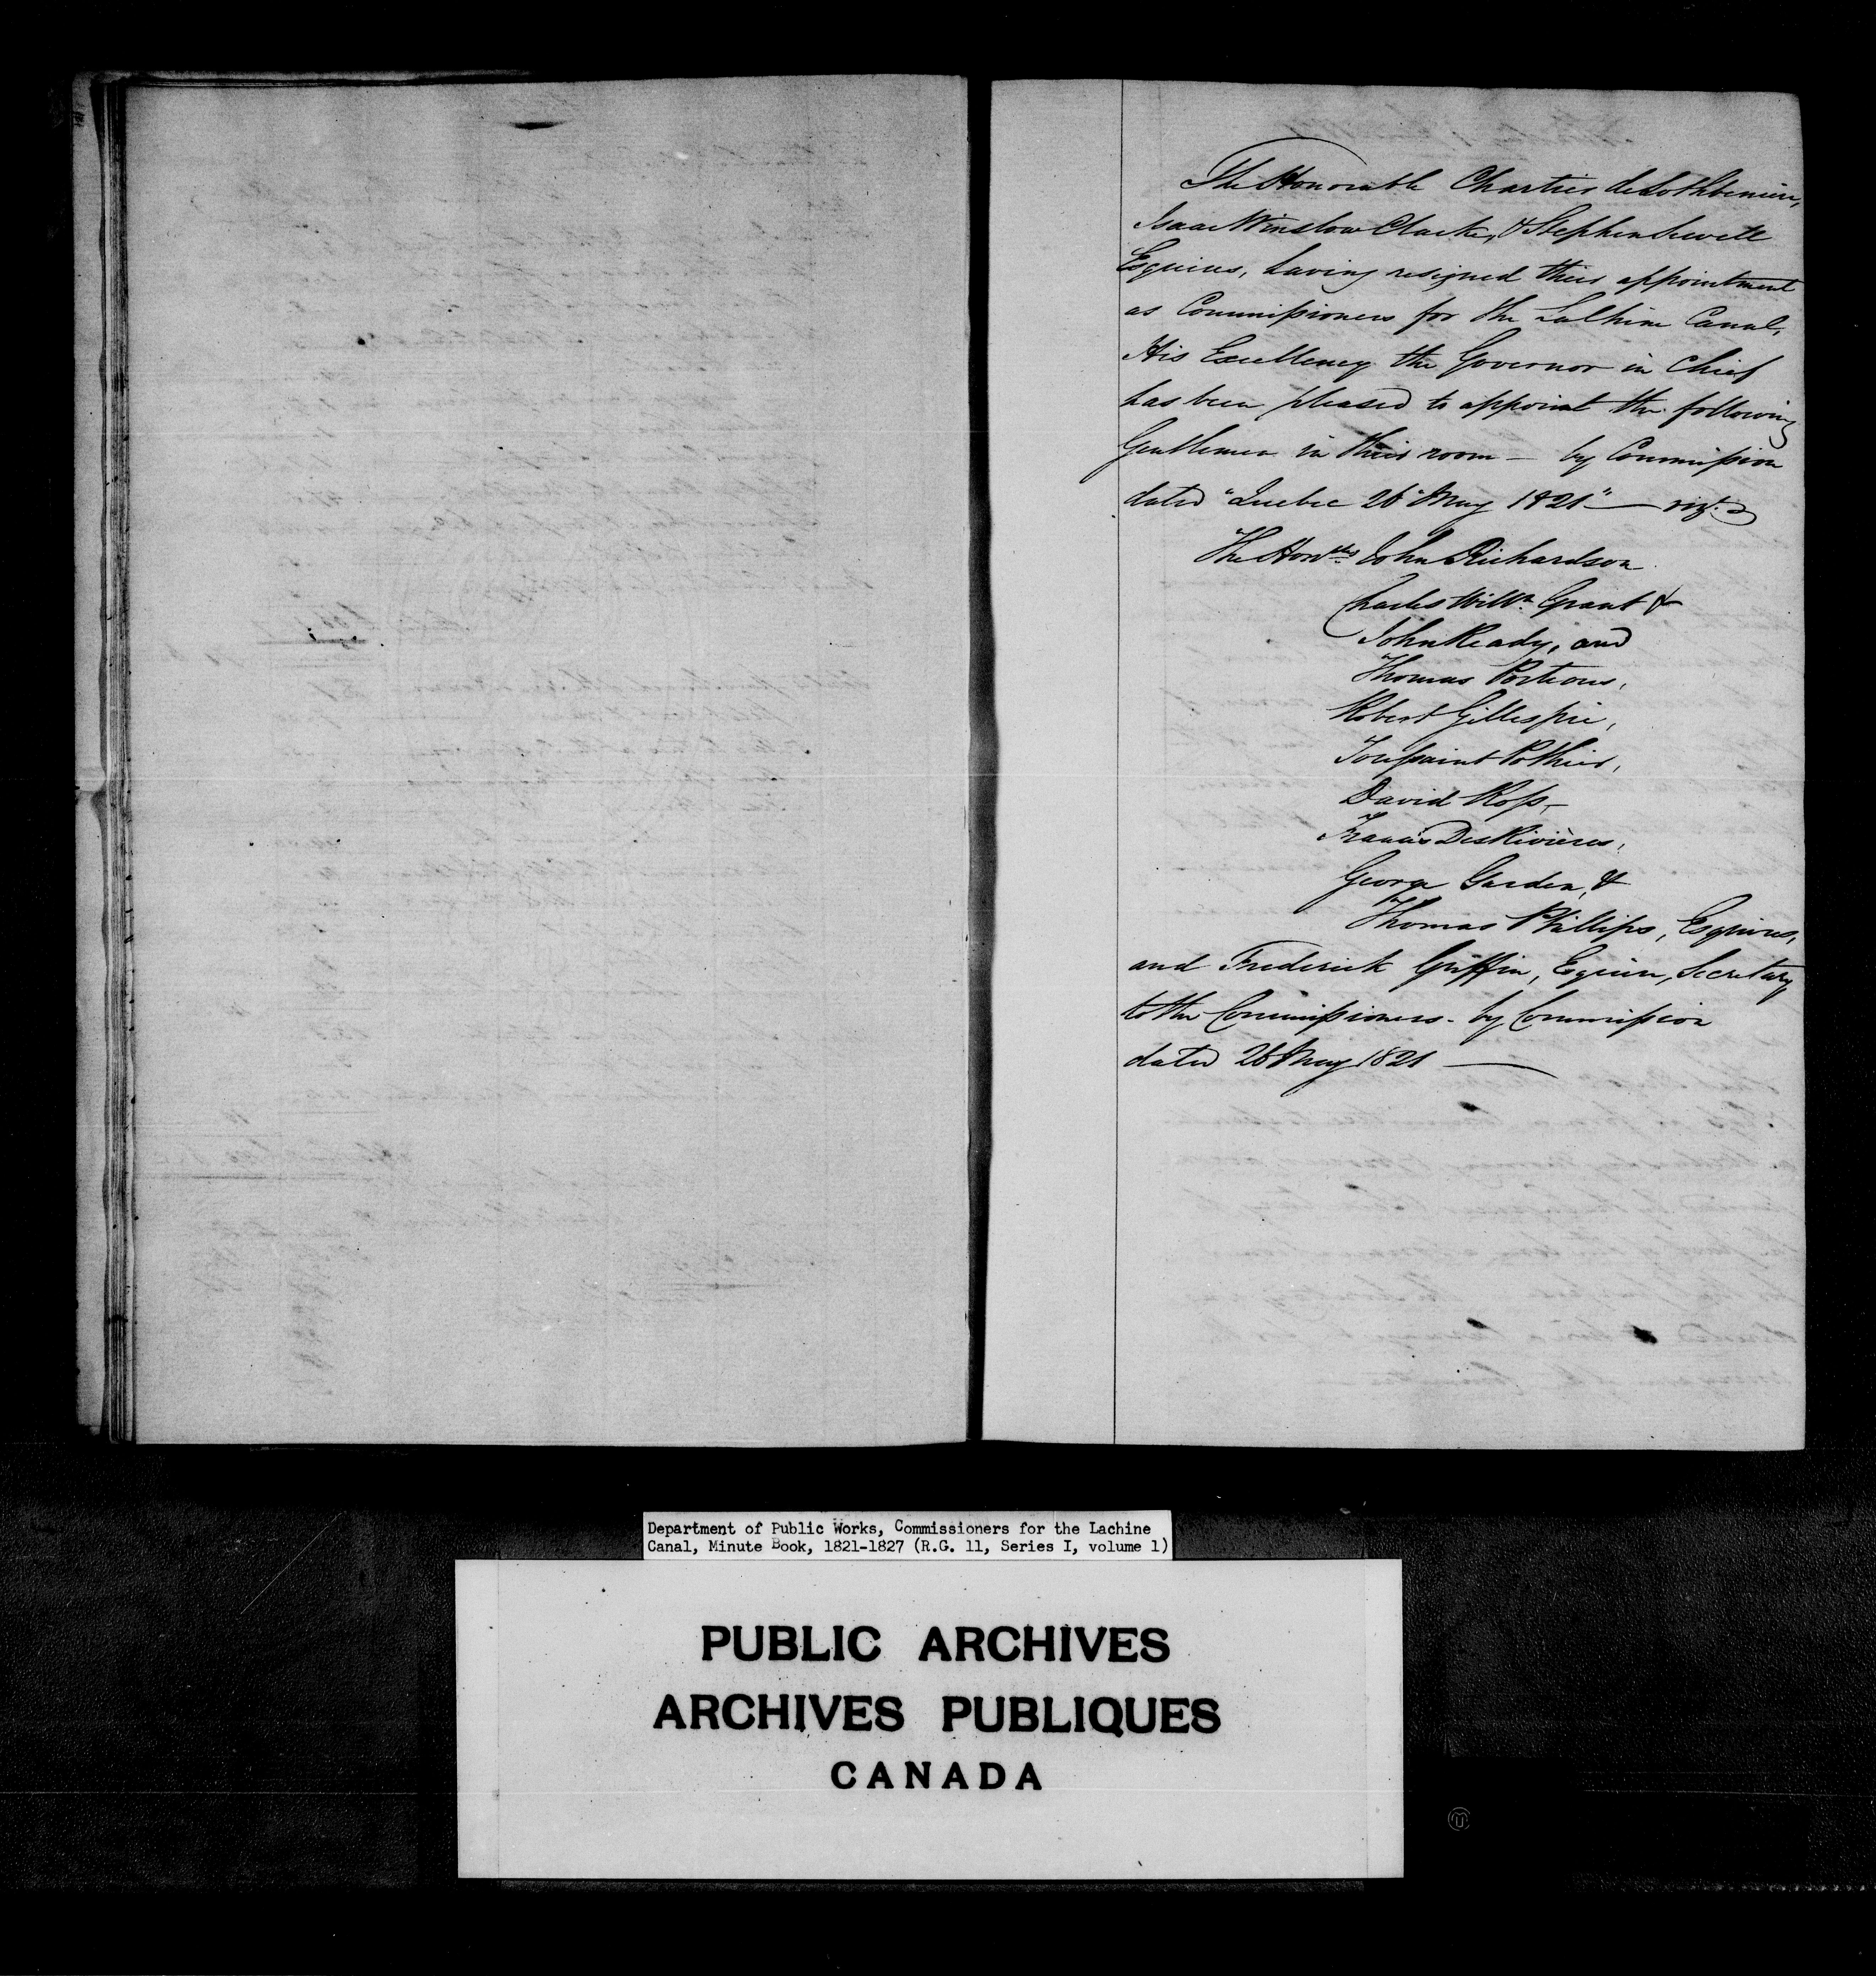 The Honorable Chartier de Lothbiniere,
Isaac Winslow Clarke, & Stephen Sewell
Esquires, having resigned their appointment
as Commissioners for the Lachine Canal,
His Excellency the Governor in Chief
has been pleased to appoint the following
Gentlemen in their room — by Commission
dated "Quebec 26 May 1821" — viz.
The Honbles John Richardson
Charles Willm. Grant &
John Ready, and
Thomas Porteous,
Robert Gillespie,
Toussaint Pothier,
David Ross,
Francis DesRivières,
George Garden, &
Thomas Phillips, Esquires,
and Frederick Griffin, Esquire, Secretary
to the Commissioners - by Commission
dated 26 May 1821 —
Department of Public Works, Commissioners for the Lachine
Canal, Minute Book, 1821-1827 (R.G. 11, Series I, volume 1)
PUBLIC ARCHIVES
ARCHIVES PUBLIQUES
CANADA